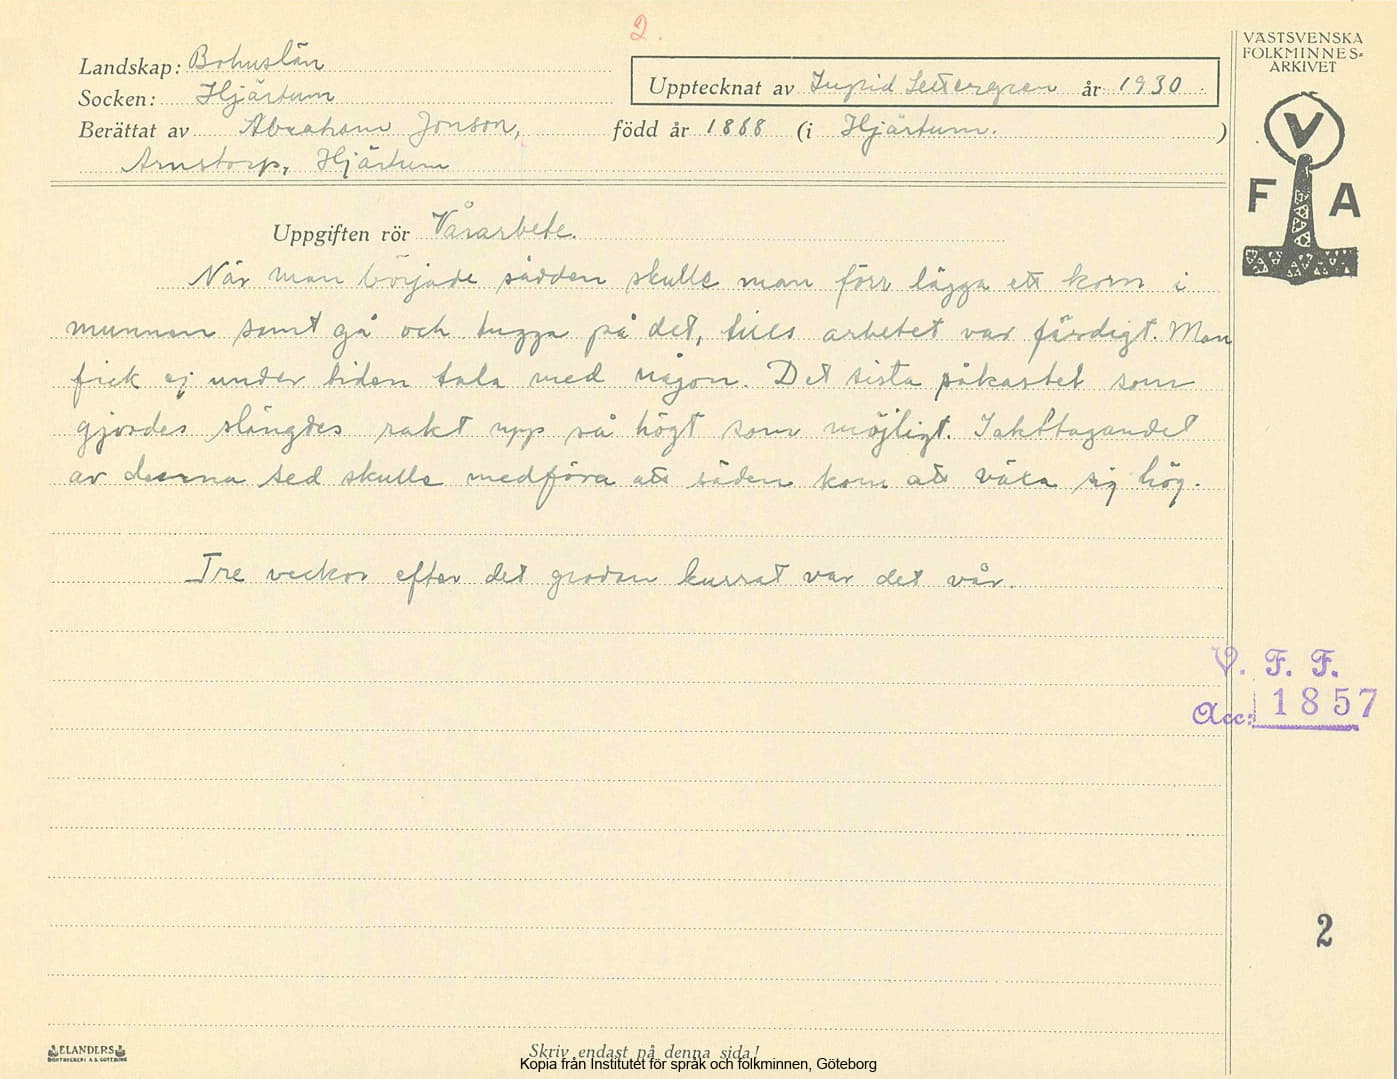 2.
VÄSTSVENSKA
FOLKMINNES-
ARKIVET
V
F A
Landskap: Bohuslän
Socken: Hjärtum
Upptecknat av Ingrid Settergren år 1930.
Berättat av Abraham Jonson, född år 1868 (i Hjärtum.)
Arnstorp, Hjärtum
Uppgiften rör Vårarbete.
När man började sådden skulle man förr lägga ett korn i
munnen samt gå och tugga på det, tills arbetet var färdigt. Man
fick ej under tiden tala med någon. Det sista påkastet som
gjordes slängdes rakt upp så högt som möjligt. Iakttagandet
av denna sed skulle medföra att säden kom att växa sig hög.
Tre veckor efter det grodan kurrat var det vår.
V. F. F.
Acc: 1857
2
ELANDERS
BOKTRYCKERI A.B. GÖTEBORG
Skriv endast på denna sida!
Kopia från Institutet för språk och folkminnen, Göteborg